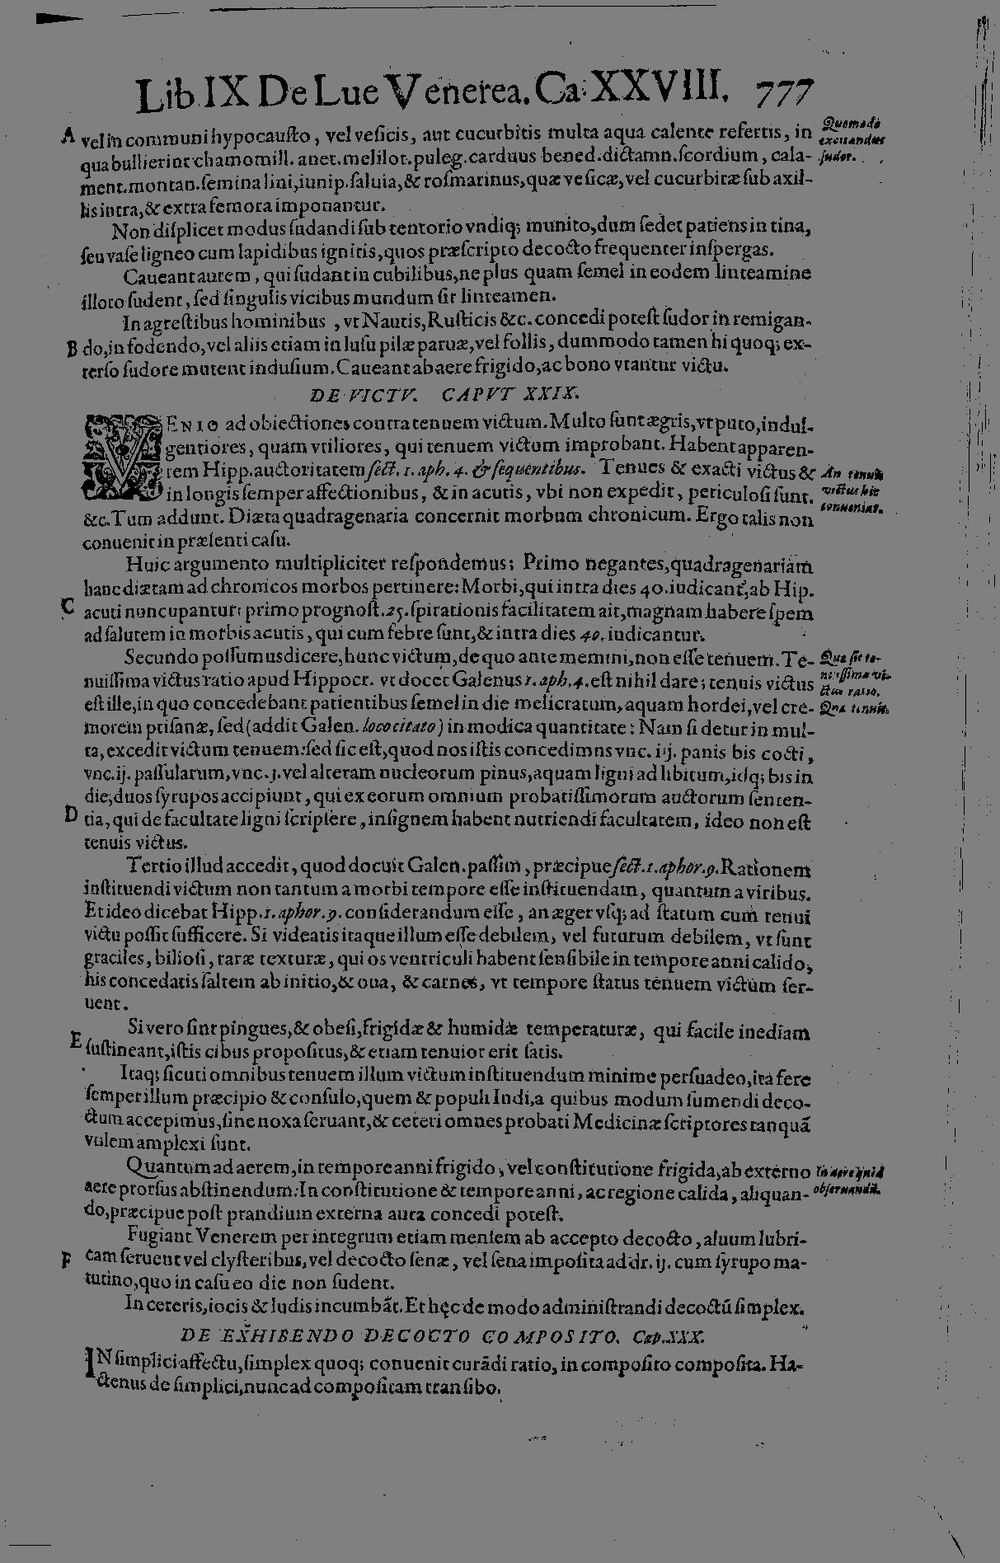 Lib IX De Lue Venerea. Ca. XXVIII. 777
A vel in communi hypocausto, vel vesicis, aut cucurbitis multa aqua calente refertis, in
Quomodo excitandus sudor.
qua bullierint chamomill. anet. melilot. puleg. carduus bened. dictamn. scordium, cala-
ment. montan. semina lini, iunip. saluia, & rosmarinus, quæ vesicæ, vel cucurbitæ sub axil-
lis intra, & extra femora imponantur.
Non displicet modus sudandi sub tentorio vndiq; munito, dum sedet patiens in tina,
seu vase ligneo cum lapidibus ignitis, quos præscripto decocto frequenter inspergas.
Caueant autem, qui sudant in cubilibus, ne plus quam semel in eodem linteamine
illoto sudent, sed singulis vicibus mundum sit linteamen.
In agrestibus hominibus, vt Nautis, Rusticis &c. concedi potest sudor in remigan-
B do, in fodendo, vel aliis etiam in lusu pilæ paruæ, vel follis, dummodo tamen hi quoq; ex-
terso sudore mutent indusium. Caueant ab aere frigido, ac bono vtantur victu.
DE VICTV. CAPVT XXIX.
VENIO ad obiectiones contra tenuem victum. Multo sunt ægris, vt puto, indul-
gentiores, quam vtiliores, qui tenuem victum improbant. Habent apparen-
tem Hipp. auctoritatem sect. 1. aph. 4. & sequentibus. Tenues & exacti victus &
An tenuis victus hic conueniat.
in longis semper affectionibus, & in acutis, vbi non expedit, periculosi sunt.
&c. Tum addunt. Diæta quadragenaria concernit morbum chronicum. Ergo talis non
conuenit in præsenti casu.
Huic argumento multipliciter respondemus; Primo negantes, quadragenariam
hanc diætam ad chronicos morbos pertinere: Morbi, qui intra dies 40. iudicant, ab Hip.
C acuti nuncupantur: primo prognost. 25. spirationis facilitatem ait, magnam habere spem
ad salutem in morbis acutis, qui cum febre sunt, & intra dies 40. iudicantur.
Secundo possumus dicere, hunc victum, de quo ante memini, non esse tenuem. Te-
Quæ sit tenuissima victus ratio.
nuissima victus ratio apud Hippocr. vt docet Galenus 1. aph. 4. est nihil dare; tenuis victus
est ille, in quo concedebant patientibus semel in die melicratum, aquam hordei, vel cre-
Quæ tenuis.
morem ptisanæ, sed (addit Galen. loco citato) in modica quantitate: Nam si detur in mul-
ta, excedit victum tenuem: sed sic est, quod nos istis concedimns vnc. iij. panis bis cocti,
vnc. ij. passularum, vnc. j. vel alteram nucleorum pinus, aquam ligni ad libitum, idq; bis in
die; duos syrupos accipiunt, qui ex eorum omnium probatissimorum auctorum senten-
D tia, qui de facultate ligni scripsere, insignem habent nutriendi facultatem, ideo non est
tenuis victus.
Tertio illud accedit, quod docuit Galen. passim, præcipue sect. 1. aphor. 9. Rationem
instituendi victum non tantum a morbi tempore esse instituendam, quantum a viribus.
Et ideo dicebat Hipp. 1. aphor. 9. considerandum esse, an æger vsq; ad statum cum tenui
victu possit sufficere. Si videatis itaque illum esse debilem, vel futurum debilem, vt sunt
graciles, biliosi, raræ texturæ, qui os ventriculi habent sensibile in tempore anni calido,
his concedatis saltem ab initio, & oua, & carnes, vt tempore status tenuem victum ser-
uent.
Si vero sint pingues, & obesi, frigidæ & humidæ temperaturæ, qui facile inediam
E sustineant, istis cibus propositus, & etiam tenuior erit satis.
Itaq; sicuti omnibus tenuem illum victum instituendum minime persuadeo, ita fere
semper illum præcipio & consulo, quem & populi Indi, a quibus modum sumendi deco-
ctum accepimus, sine noxa seruant, & ceteri omnes probati Medicinæ scriptores tanquã
vulem amplexi sunt.
Quantum ad aerem, in tempore anni frigido, vel constitutione frigida, ab externo
In aere quid obseruandũ.
aere prorsus abstinendum: In constitutione & tempore anni, ac regione calida, aliquan-
do, præcipue post prandium externa aura concedi potest.
Fugiant Venerem per integrum etiam mensem ab accepto decocto, aluum lubri-
F cam seruent vel clysteribus, vel decocto senæ, vel sena imposita ad dr. ij. cum syrupo ma-
tutino, quo in casu eo die non sudent.
In ceteris, iocis & ludis incumbãt. Et hęc de modo administrandi decoctũ simplex.
DE EXHIBENDO DECOCTO COMPOSITO. Cap. XXX.
IN simplici affectu, simplex quoq; conuenit curãdi ratio, in composito composita. Ha-
ctenus de simplici, nunc ad compositam transibo.